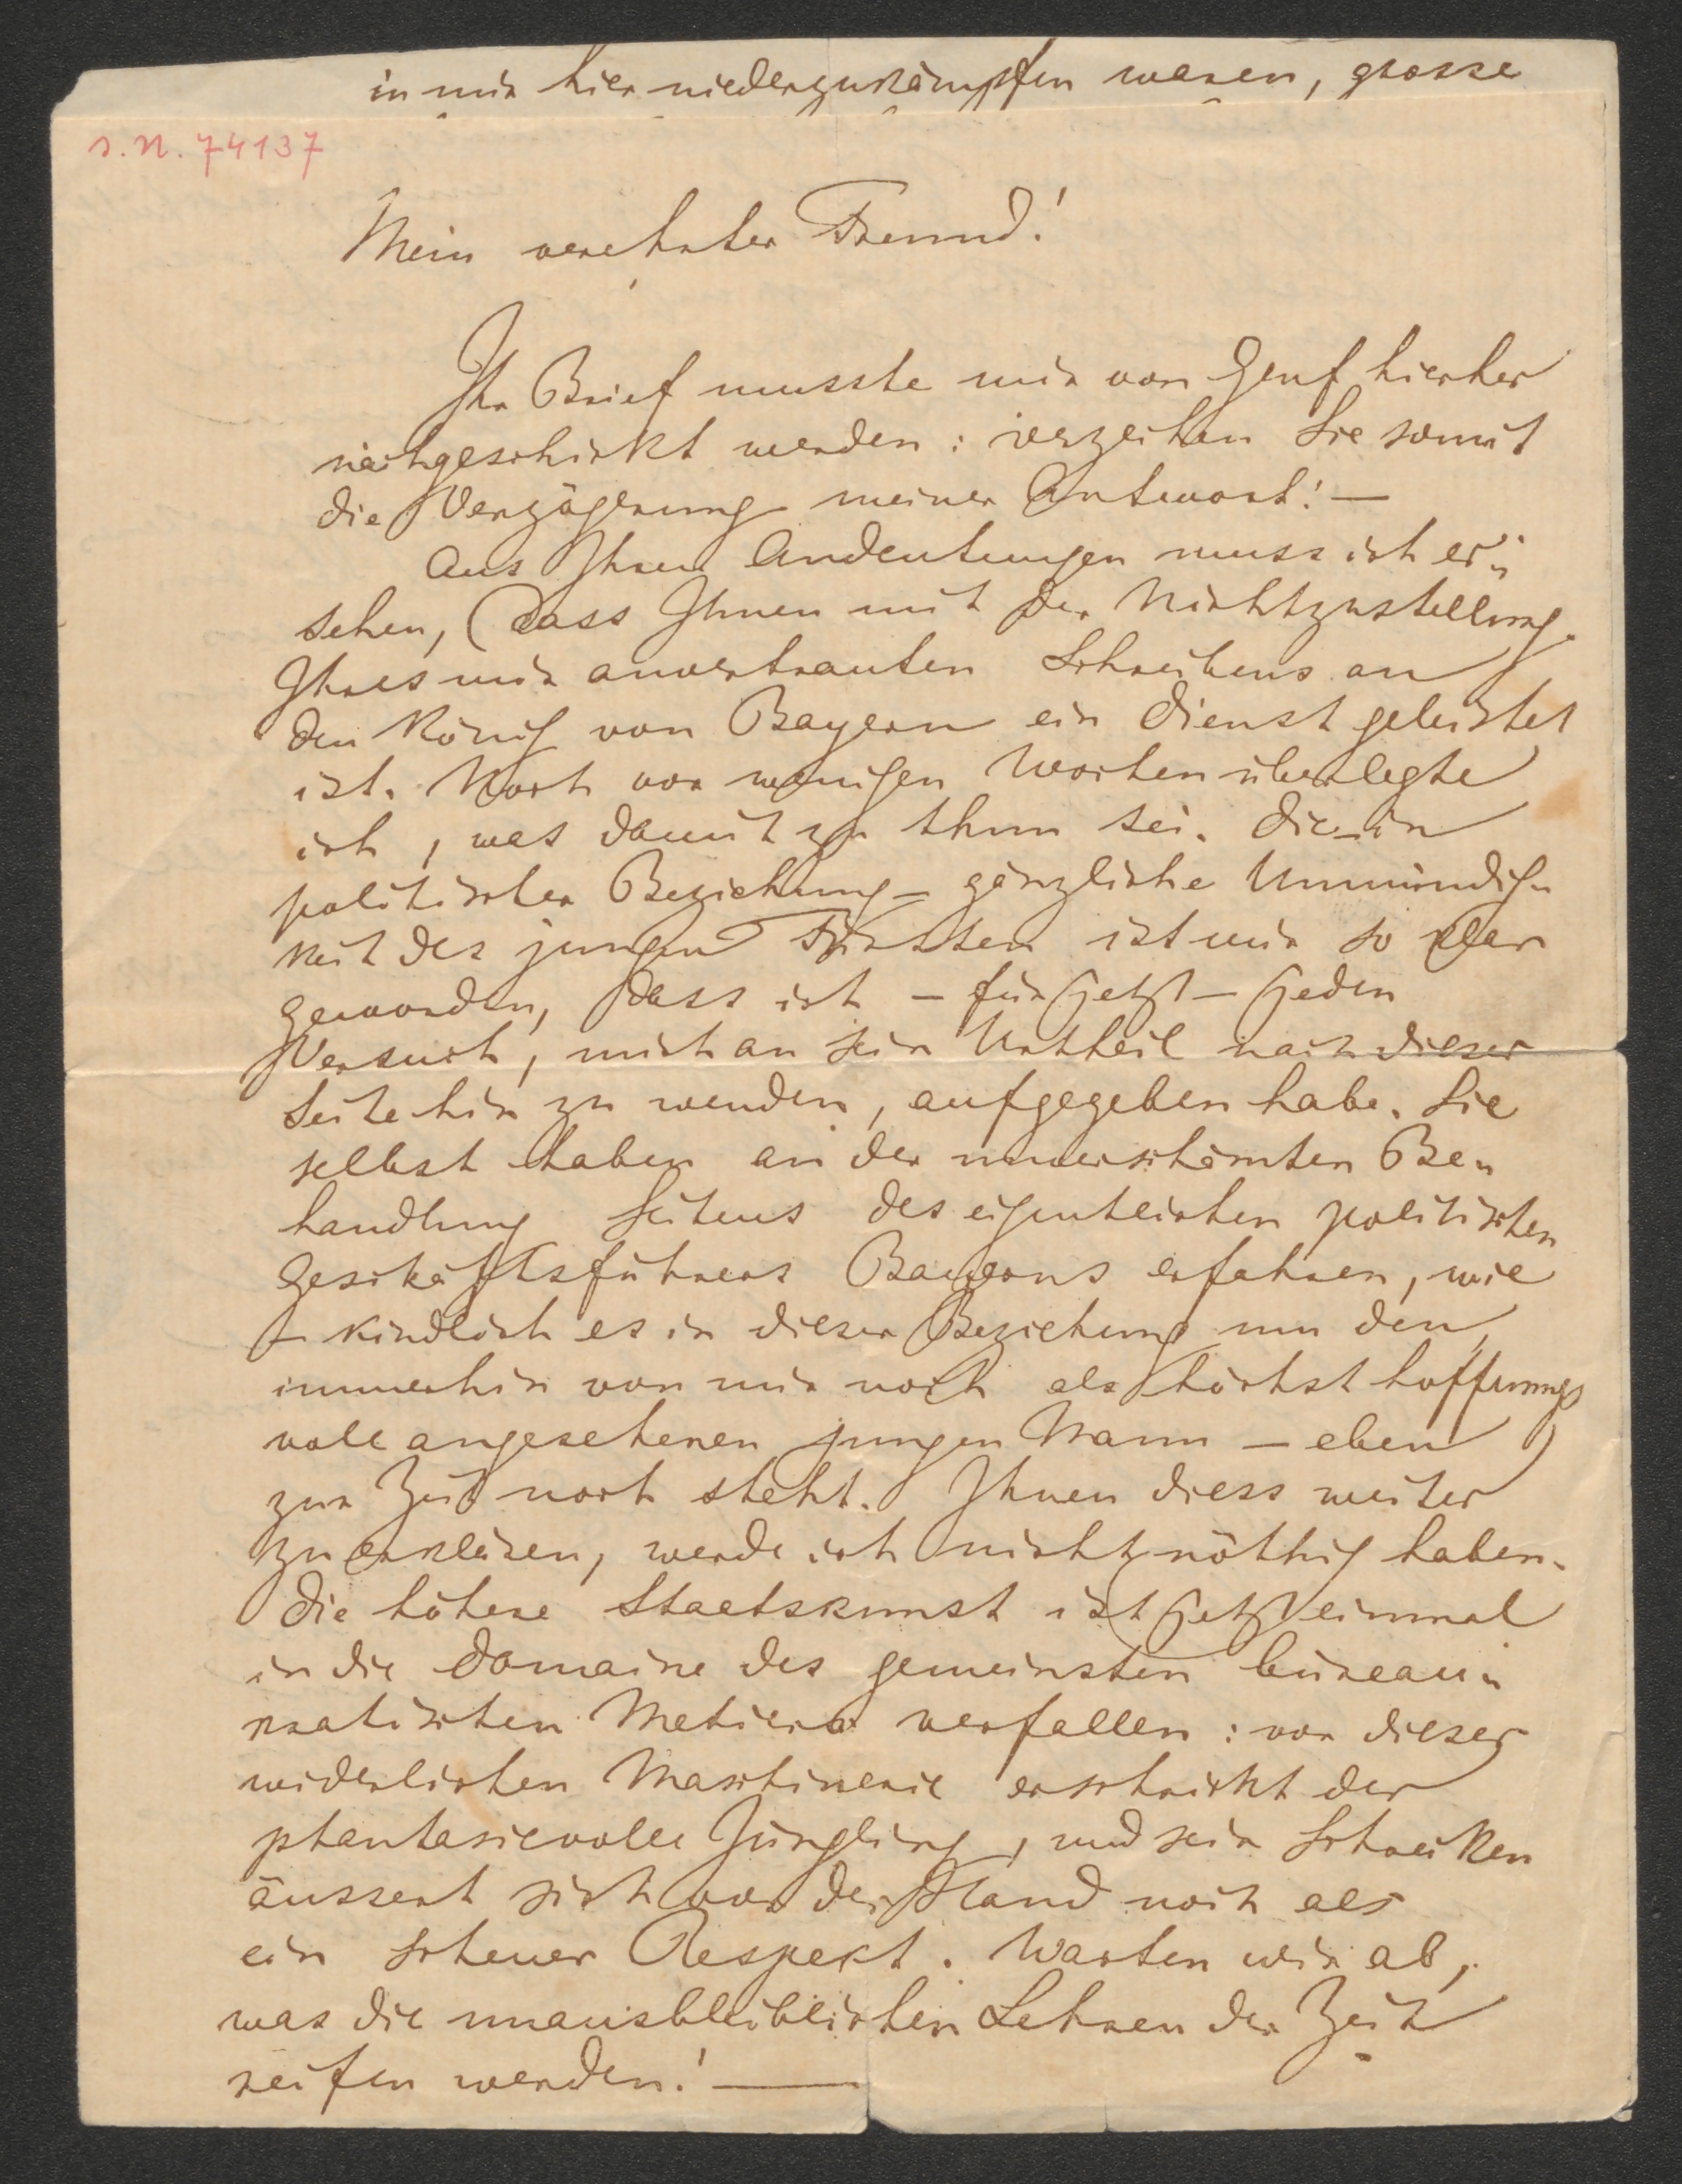 in mir hier niederzukämpfen waren, grosse
S. N. 74137
Mein verehrter Freund!
Ihr Brief musste mir von Genf hierher
nachgeschickt werden: verzeihen Sie somit
die Verzögerung meiner Antwort! —
Aus Ihren Andeutungen muss ich er„
sehen, dass Ihnen mit der Nichtzustellung
Ihres mir anvertrauten Schreibens an
den König von Bayern ein Dienst geleistet
ist. Noch vor wenigen Wochen überlegte
ich, was damit zu thun sei. Die – in
politischer Beziehung – gänzliche Unmündig„
keit des jungen Fürsten ist mir so klar
geworden, dass ich – für jetzt – jeden
Versuch, mich an sein Urtheil nach dieser
Seite hin zu wenden, aufgegeben habe. Sie
selbst haben an der unverschämten Be„
handlung Seitens des eigentlichen politischen
Geschäftsführers Bayerns erfahren, wie
– kindlich es in dieser Beziehung um den,
immerhin von mir noch als höchst hoffnungs
voll angesehenen jungen Mann – eben
zur Zeit noch steht. Ihnen diess weiter
zu erklären, werde ich nicht nöthig haben.
Die höhere Staatskunst ist jetzt einmal
in die Domaine des gemeinsten büreau„
kratischen Metiers verfallen: vor dieser
widerlichen Maschinerie erschrickt der
phantasievolle Jüngling, und sein Schrecken
äussert sich vor der Hand noch als
ein scheuer Respekt. Warten wir ab,
was die unausbleiblichen Lehren der Zeit
reifen werden! —